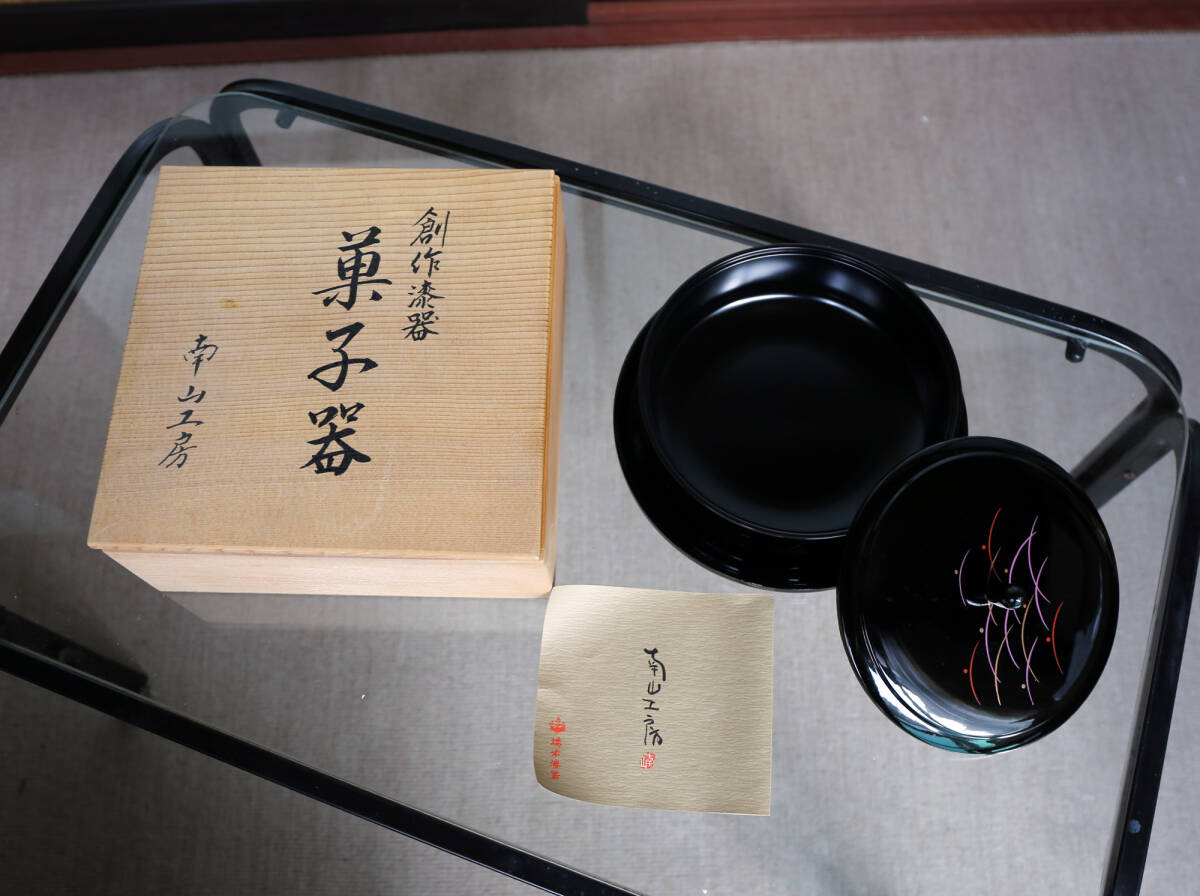 創作漆器
菓子器
南山工房
南山工房